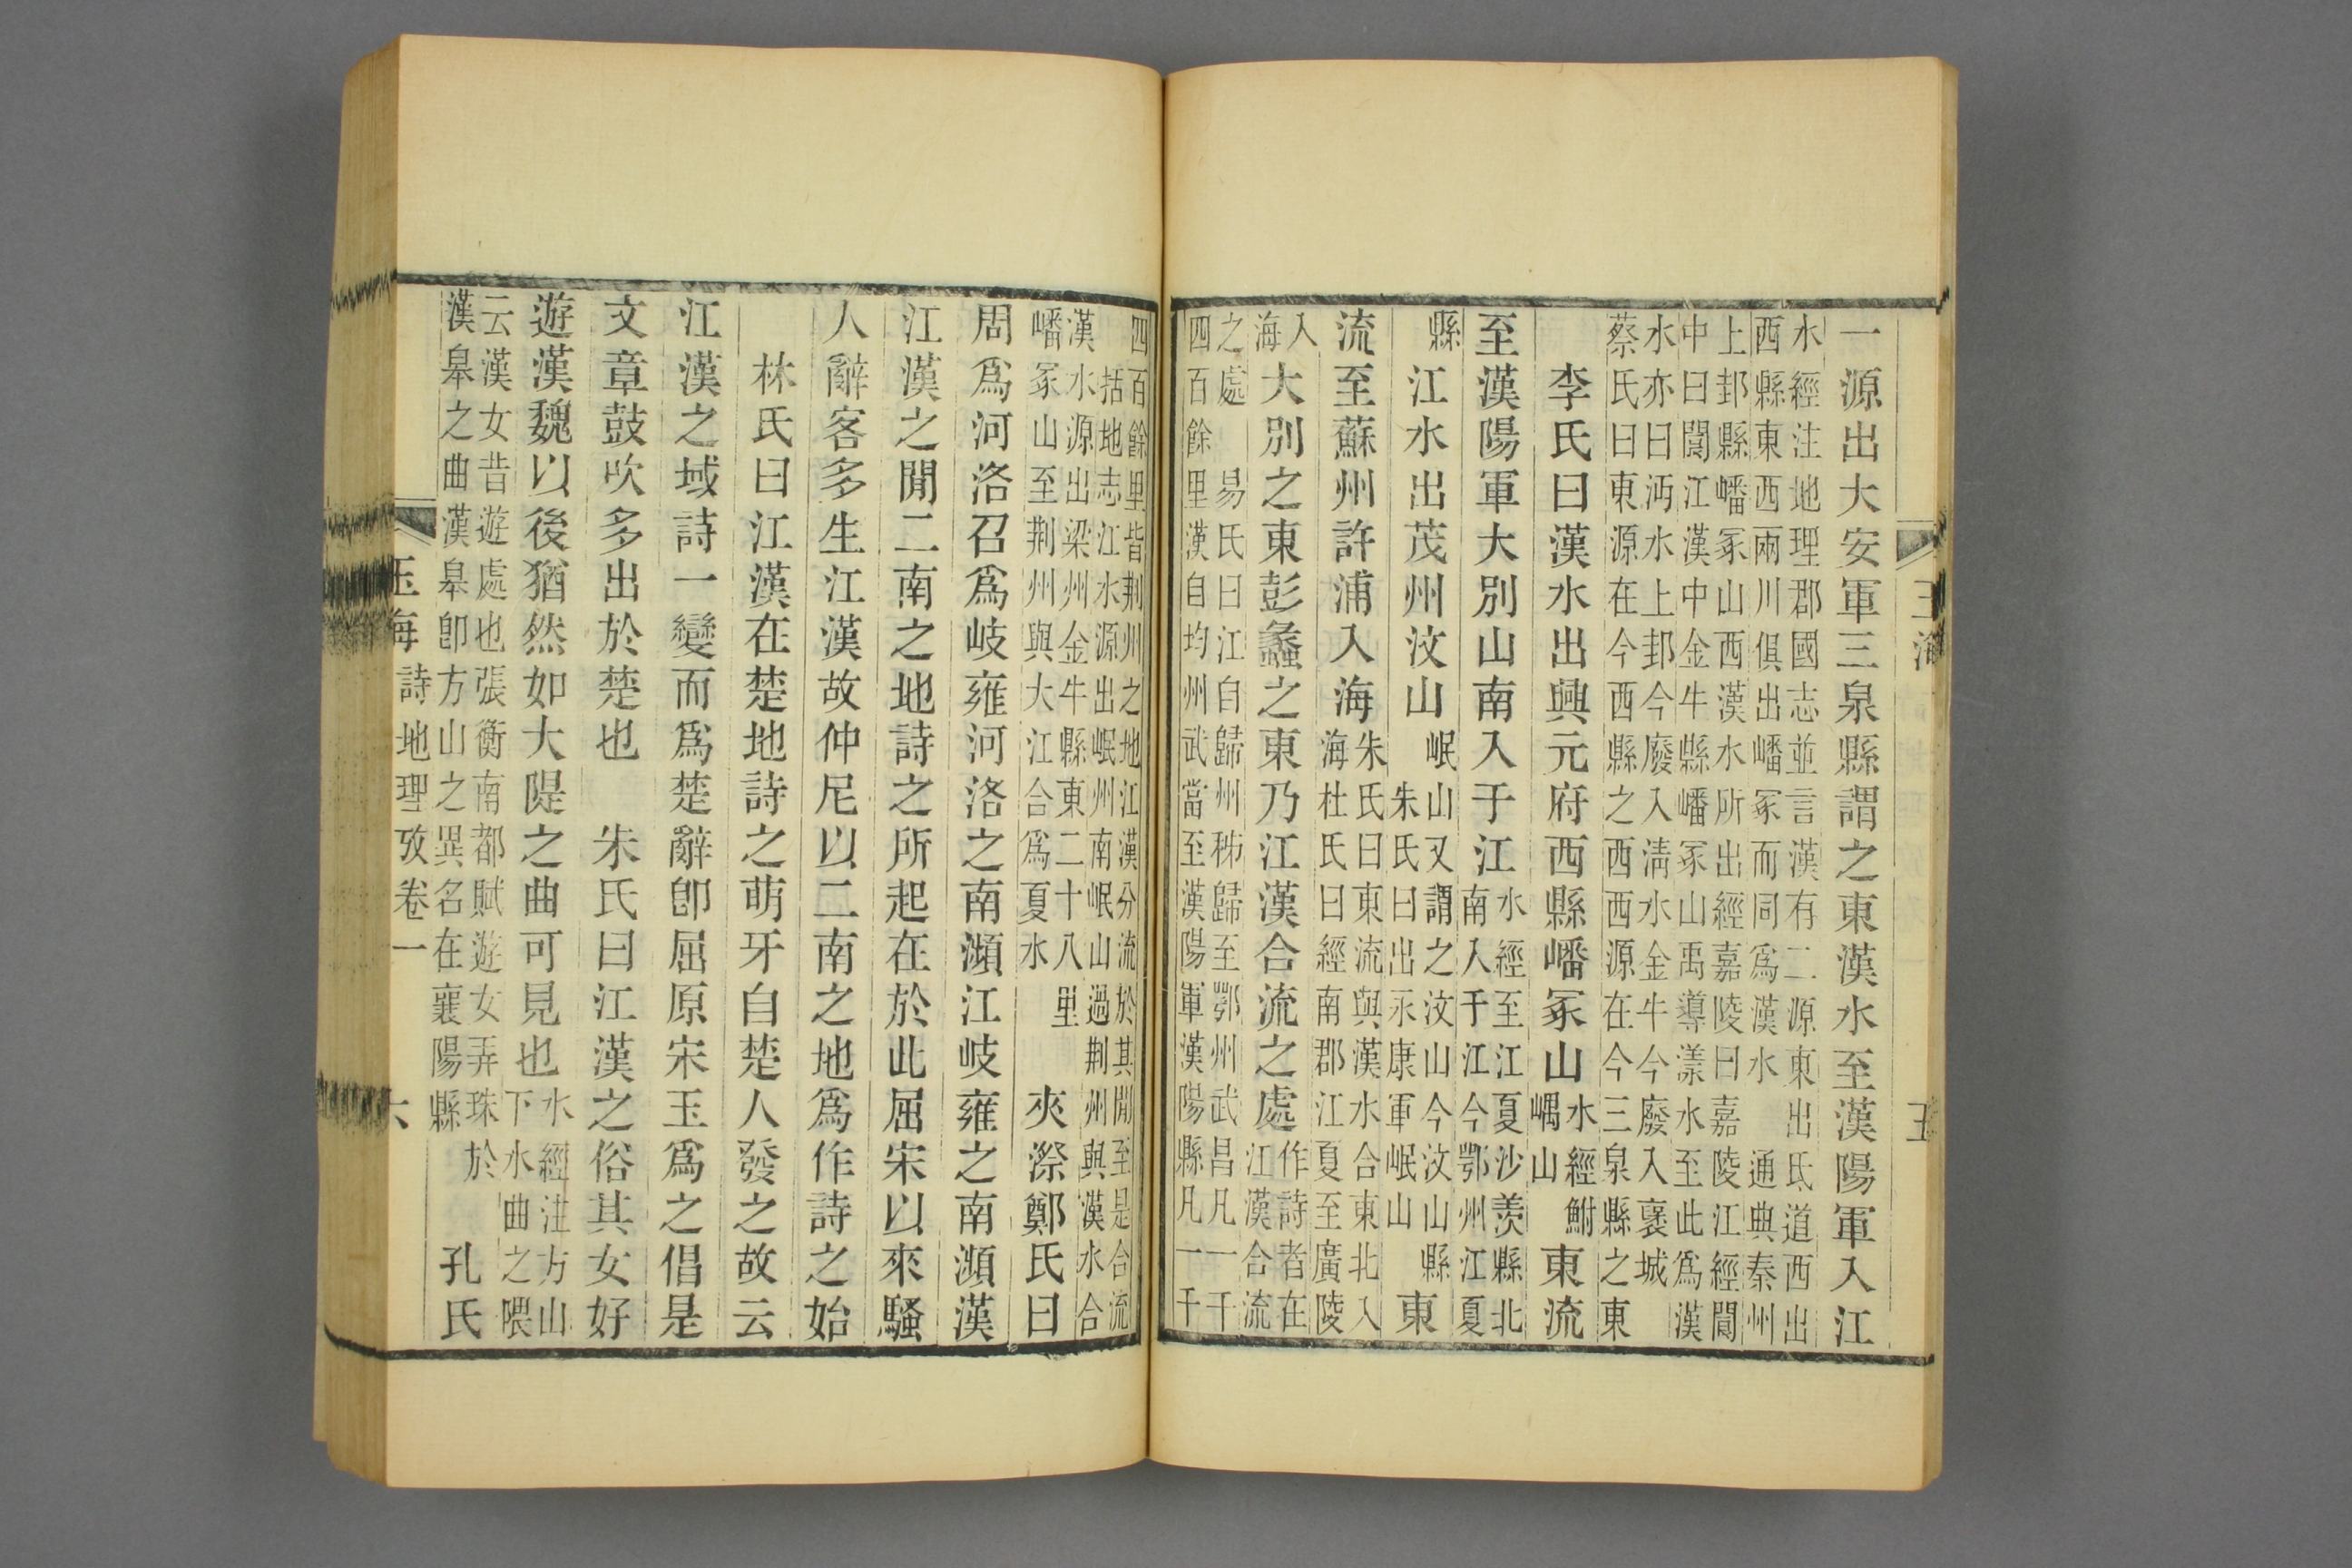 一源出大安軍三泉縣謂之東漢水至漢陽軍入江
水經注地理郡國志並言漢有二源東出氐道西出
西縣東西兩川俱出嶓冢而同爲漢水　通典秦州
上邽縣嶓冢山西漢水所出經嘉陵曰嘉陵江經閬
中曰閬江漢中金牛縣嶓冢山禹導漾水至此爲漢
水亦曰沔水上邽今廢入淸水金牛今廢入襃城
蔡氏曰東源在今西縣之西西源在今三泉縣之東
李氏曰漢水出興元府西縣嶓冢山水經鮒嵎山東流
至漢陽軍大別山南入于江水經至江夏沙羨縣北南入于江今鄂州江夏
縣　江水出茂州汶山岷山又謂之汶山今汶山縣朱氏曰出永康軍岷山東
流至蘇州許浦入海朱氏曰東流與漢水合東北入海杜氏曰經南郡江夏至廣陵
入海大別之東彭蠡之東乃江漢合流之處作詩者在江漢合流
之處　易氏曰江自歸州秭歸至鄂州武昌凡一千
四百餘里漢自均州武當至漢陽軍漢陽縣凡一千
玉海
五
四百餘里皆荆州之地江漢分流於其閒至是合流
括地志江水源出岷州南岷山過荆州與漢水合
漢水源出梁州金牛縣東二十八里嶓冢山至荆州與大江合爲夏水　夾漈鄭氏曰
周爲河洛召爲岐雍河洛之南瀕江岐雍之南瀕漢
江漢之閒二南之地詩之所起在於此屈宋以來騷
人辭客多生江漢故仲尼以二南之地爲作詩之始
林氏曰江漢在楚地詩之萌牙自楚人發之故云
江漢之域詩一變而爲楚辭卽屈原宋玉爲之倡是
文章鼓吹多出於楚也　朱氏曰江漢之俗其女好
遊漢魏以後猶然如大隄之曲可見也水經注方山下水曲之隈
云漢女昔遊處也張衡南都賦遊女弄珠於漢皐之曲漢皐卽方山之異名在襄陽縣　孔氏
玉海　詩地理攷卷一
六